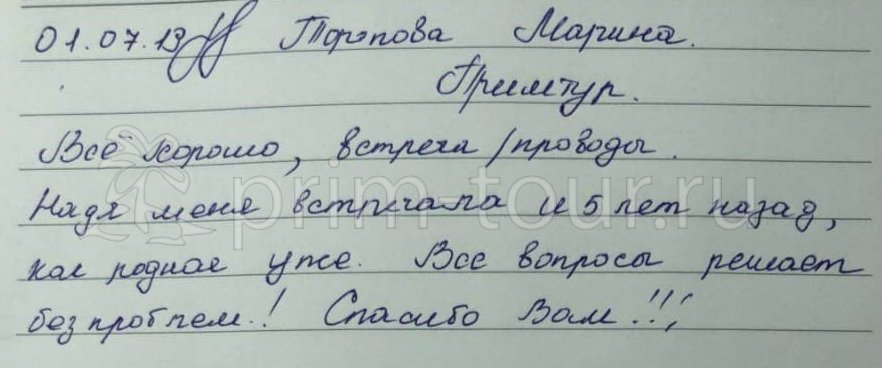 01.07.13 Торопова Марина.
Примтур.
Всё хорошо, встреча/проводы.
Надя меня встречала и 5 лет назад,
как родная уже. Все вопросы решает
без проблем.! Спасибо Вам!!!
prim-tour.ru